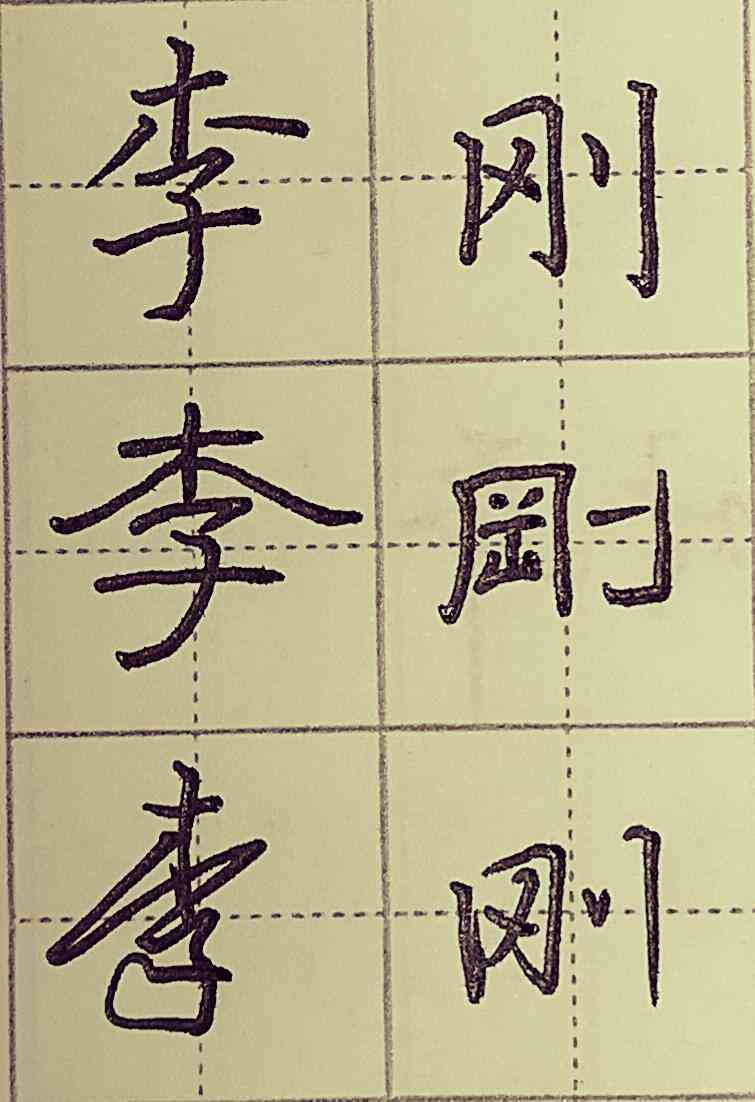 李刚
李剛
李刚